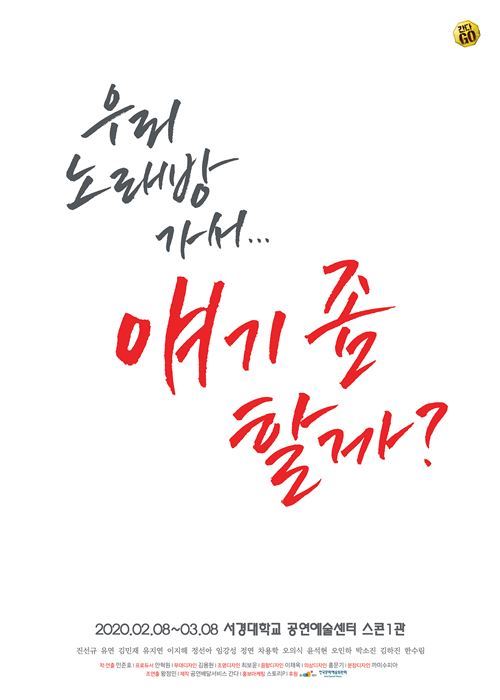 간다
GO
우리
노래방
가서...
얘기 좀
할까?
2020.02.08~03.08 서경대학교 공연예술센터 스콘1관
진선규 유연 김민재 유지연 이지해 정선아 임강성 정연 차용학 오의식 윤석현 오인하 박소진 김하진 한수림
작·연출 민준호 | 프로듀서 안혁원 | 무대디자인 김용현 | 조명디자인 최보윤 | 음향디자인 이채욱 | 의상디자인 홍문기 | 분장디자인 까미수피아
조연출 왕정민 | 제작 공연배달서비스 간다 | 홍보마케팅 스토리P | 후원 한국문화예술위원회